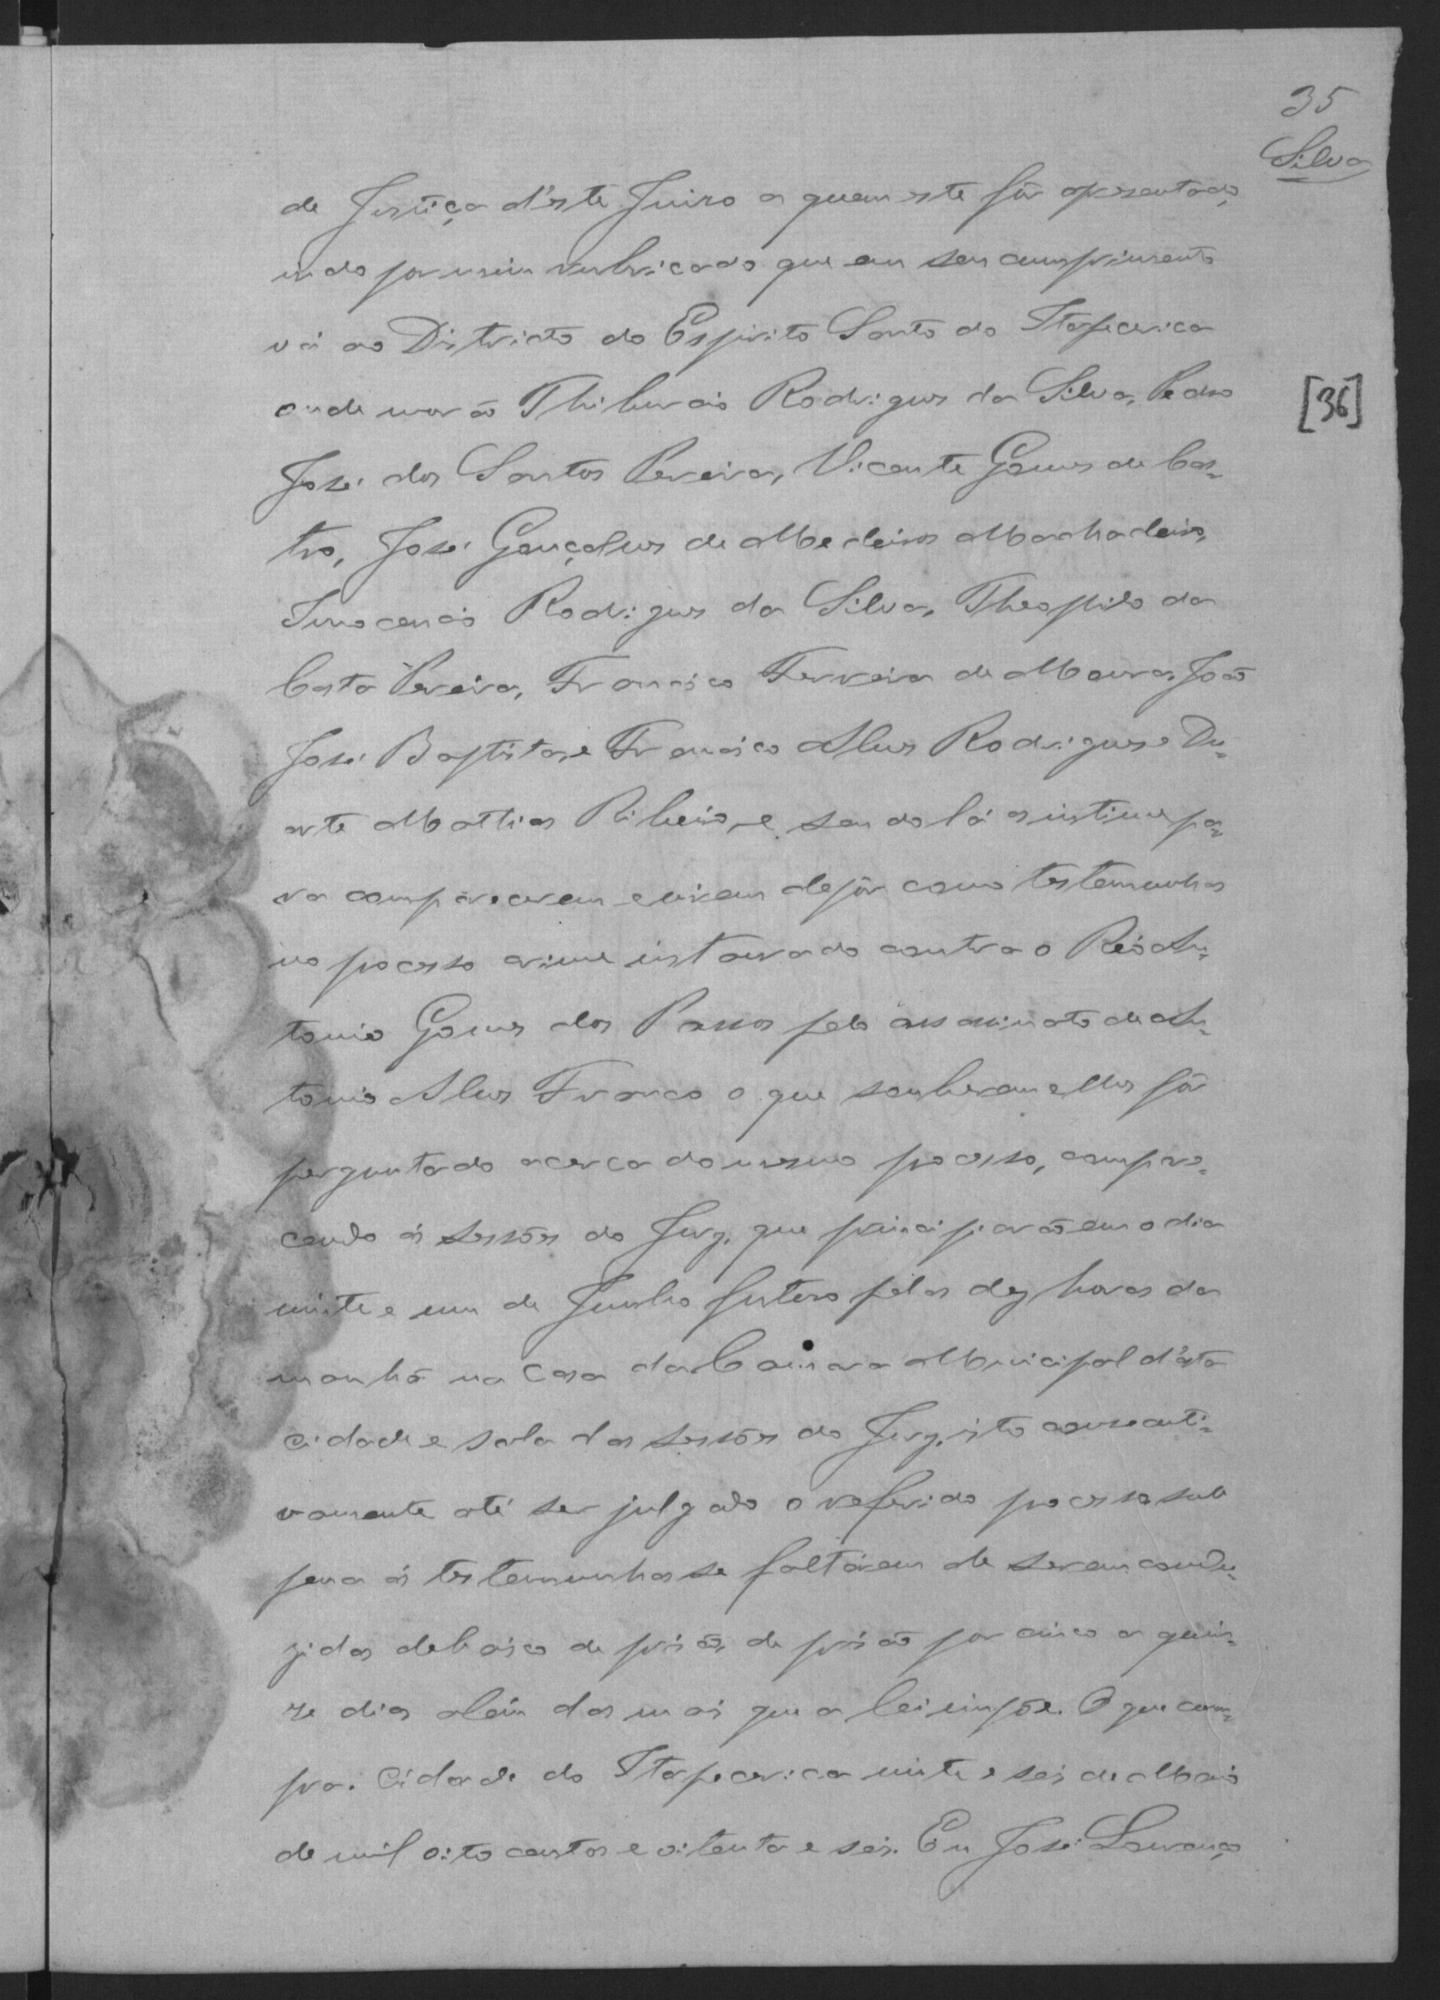 35
Silva
de Justiça d'este Juizo a quem este fôr apresentado,
indo por mim rubricado que em seu cumprimento
vá ao Districto do Espirito Santo do Itapecerica
onde morão Thiburcio Rodrigues da Silva, Pedro
José dos Santos Pereira, Vicente Gomes de Cas-
tro, José Gonçalves de Medeiros Machadeiro,
Innocencio Rodrigues da Silva, Theophilo da
Costa Pereira, Francisco Ferreira de Moura, João
José Baptista, e Francisco Alves Rodrigues e Du-
arte Mathias Ribeiro, e sendo lá as intime pa-
ra comparecerem e virem depôr como testemunhas
no processo crime instaurado contra o Réo An-
tonio Gomes dos Passos pelo assassinato de An-
tonio Alves Franco o que souberem e lles fôr
perguntado acerca do mesmo processo, compare-
cendo ás sessões do Jury, que principiarão em o dia
vinte e um de Junho futuro pelas dez horas da
manhã na casa da Camara Municipal d'esta
cidade e sala das sessões do Jury, isto consecuti-
vamente até ser julgado o referido processo sub
pena ás testemunhas se faltárem de serem condu-
zidas debaixo de prisão, de prisão por cinco a quin-
ze dias além das mais que a lei impõe. O que cum-
pra. Cidade do Itapecerica vinte e seis de Maio
de mil oito centos e oitenta e seis. Eu José Lourenço
[36]